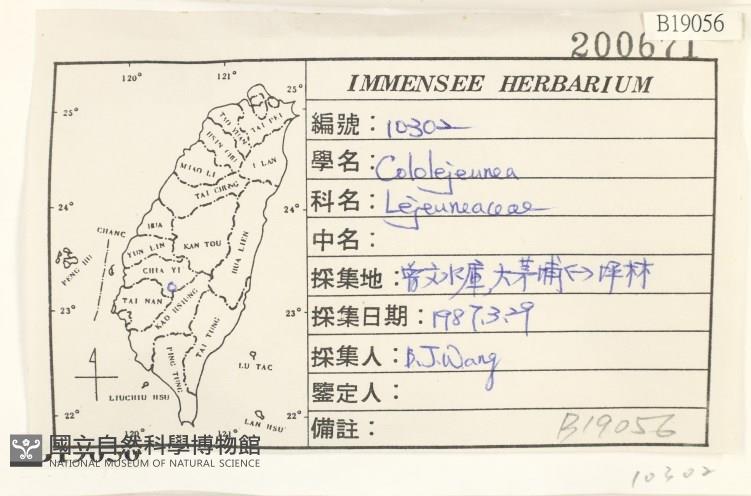 B19056
200671
IMMENSEE HERBARIUM
編號：10302
學名：Cololejeunea
科名：Lejeuneaceae
中名：
採集地：曾文水庫,大茅埔↔坪林
採集日期：1987.3.29
採集人：B.J.Wang
鑒定人：
備註：
B19056
10302
120°
121°
25°
25°
TAO YUAN
TAI PEI
HSIN CHU
I LAN
MIAO LI
TAI CHUNG
24°
24°
CHANG
HUA
YUN LIN
KAN TOU
HUA LIEN
PENG HU
CHIA YI
23°
23°
TAI NAN
KAO HSIUNG
TAI TUNG
PING TUNG
LU TAC
LIUCHIU HSU
LAN HSU
22°
22°
120°
121°
國立自然科學博物館
NATIONAL MUSEUM OF NATURAL SCIENCE